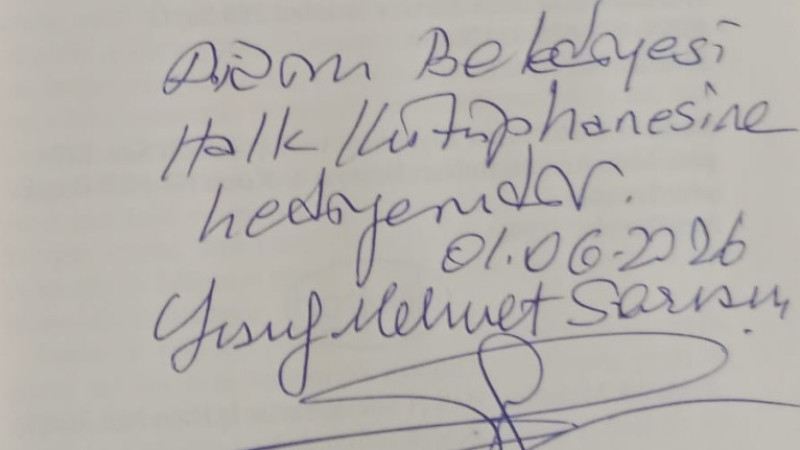 Belediyesi
Halk Kütüphanesine
hediyemdir.
01.06.2026
Yusuf Mehmet